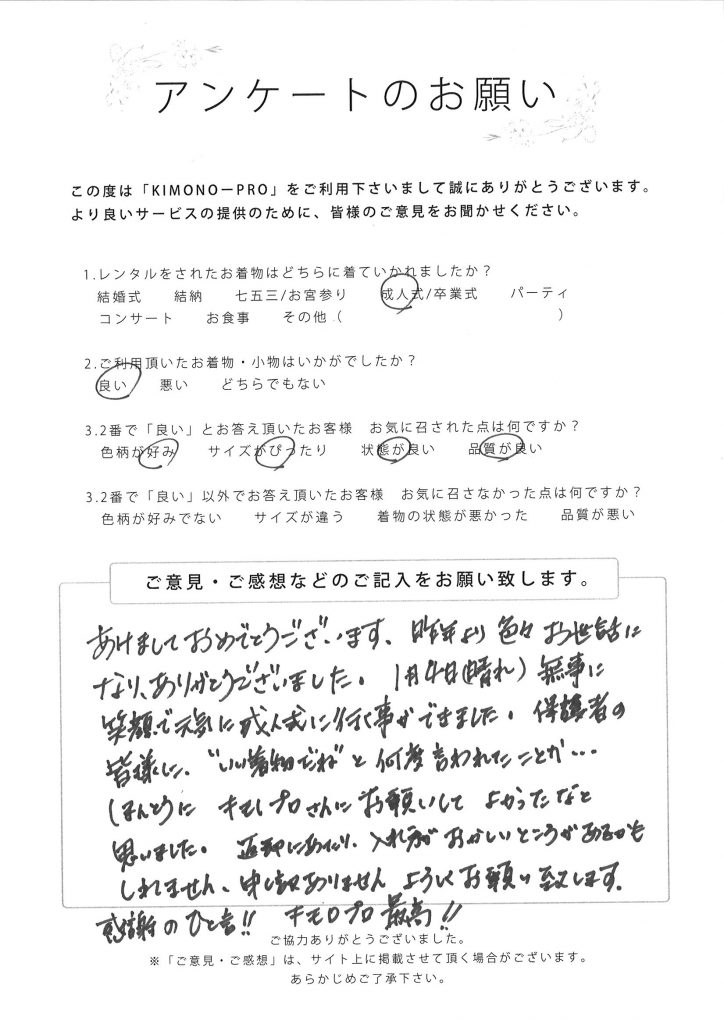 アンケートのお願い
この度は「KIMONO－PRO」をご利用下さいまして誠にありがとうございます。
より良いサービスの提供のために、皆様のご意見をお聞かせください。
1.レンタルをされたお着物はどちらに着ていかれましたか？
結婚式　結納　七五三/お宮参り　成人式/卒業式　パーティ
コンサート　お食事　その他（　　　　　　　　　　）
2.ご利用頂いたお着物・小物はいかがでしたか？
良い　悪い　どちらでもない
3.2番で「良い」とお答え頂いたお客様　お気に召された点は何ですか？
色柄が好み　サイズがぴったり　状態が良い　品質が良い
3.2番で「良い」以外でお答え頂いたお客様　お気に召さなかった点は何ですか？
色柄が好みでない　サイズが違う　着物の状態が悪かった　品質が悪い
ご意見・ご感想などのご記入をお願い致します。
あけましておめでとうございます、昨年より色々お世話に
なり、ありがとうございました。1月4日(晴れ) 無事に
笑顔で元気に成人式に行く事ができました。保護者の
皆様に、"いい着物だね"と何度言われたことか…
ほんとうに キモノプロさんにお願いして よかったなと
思いました。返却にあたり、入れ方が おかしいところがあるかも
しれません、申し訳ありません よろしくお願い致します。
感謝のひと言!! キモノプロ 最高!!
ご協力ありがとうございました。
※「ご意見・ご感想」は、サイト上に掲載させて頂く場合がございます。
あらかじめご了承下さい。